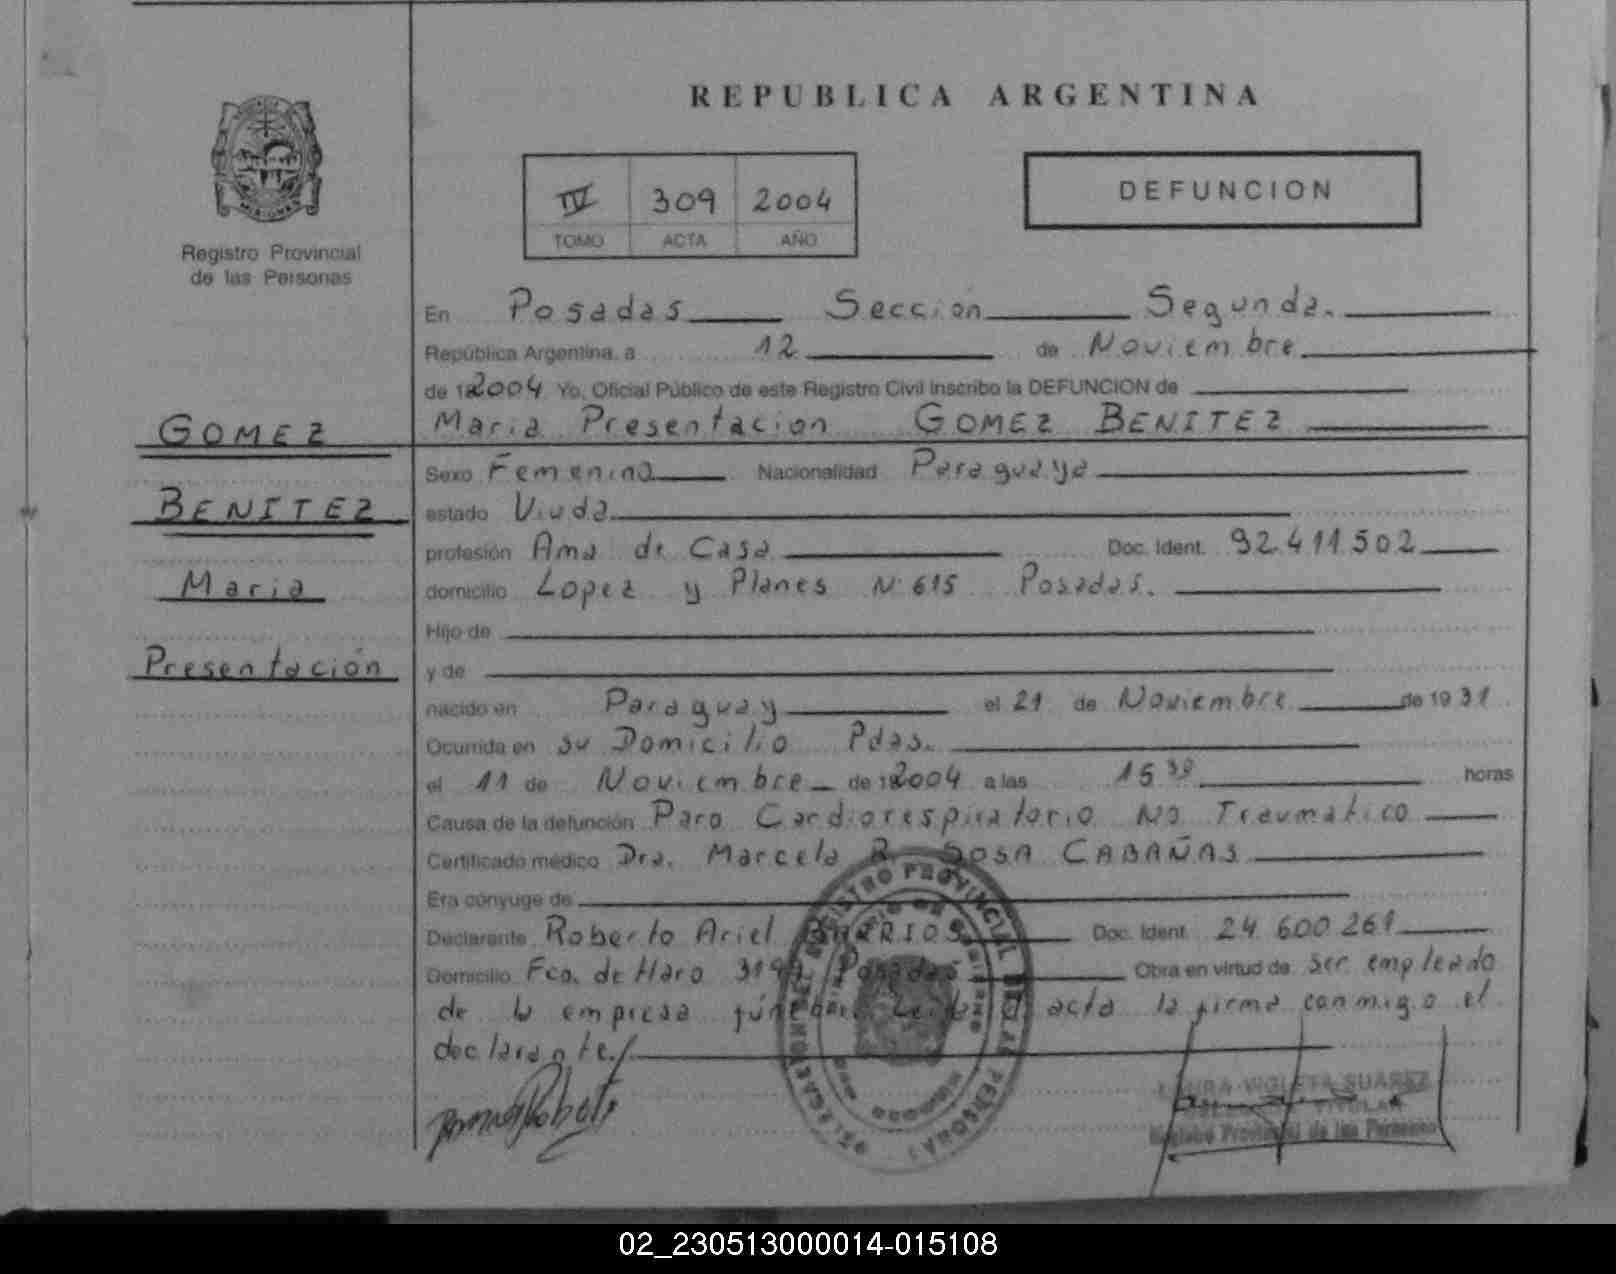 REPUBLICA ARGENTINA
MISIONES
Registro Provincial
de las Personas
IV 309 2004
TOMO ACTA AÑO
DEFUNCION
En Posadas Sección Segunda.
República Argentina, a 12 de Noviembre
de 2004 Yo, Oficial Público de este Registro Civil inscribo la DEFUNCION de
Maria Presentacion GOMEZ BENITEZ
GOMEZ
BENITEZ
Maria
Presentación
Sexo Femenino Nacionalidad Paraguaya
estado Viuda
profesión Ama de Casa Doc. Ident. 92.411.502
domicilio Lopez y Planes Nº 615 Posadas.
Hijo de
y de
nacido en Paraguay el 21 de Noviembre de 1931
Ocurrida en su Domicilio Pdas.
el 11 de Noviembre de 2004 a las horas
Causa de la defunción Paro Cardiorespiratorio No Traumático
Certificado médico Dra. Marcela R. SOSA CABAÑAS
Era cónyuge de
Declarante Roberto Ariel BARRIOS Doc. Ident. 24.600.261
Domicilio Fco. de Haro Posadas Obra en virtud de ser empleado
de la empresa fúnebre. Leída el acta la firma conmigo el
declarante./
REGISTRO PROVINCIAL DE LAS PERSONAS
LAURA VIOLETA SUAREZ
TITULAR
Registro Provincial de las Personas
02_230513000014-015108